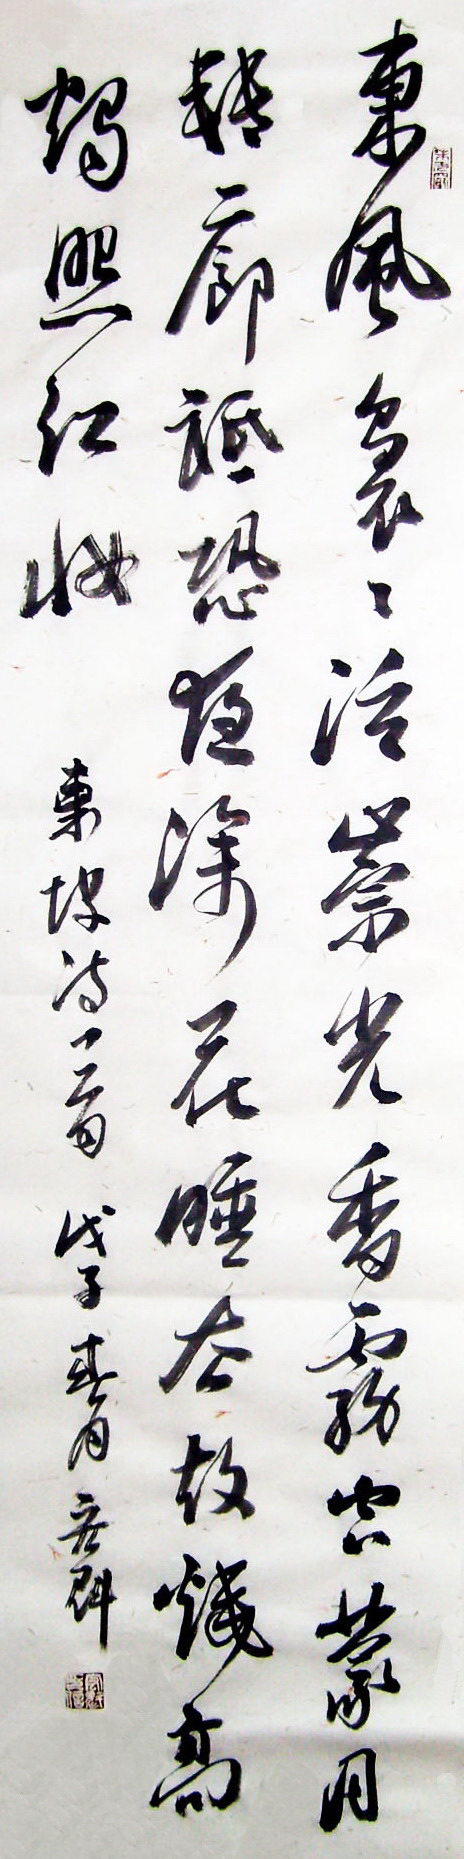 東風裊々泛崇光香霧空蒙月
轉廊祗恐夜深花睡去故燒高
燭照紅妝
東坡詩一首 戊子春月